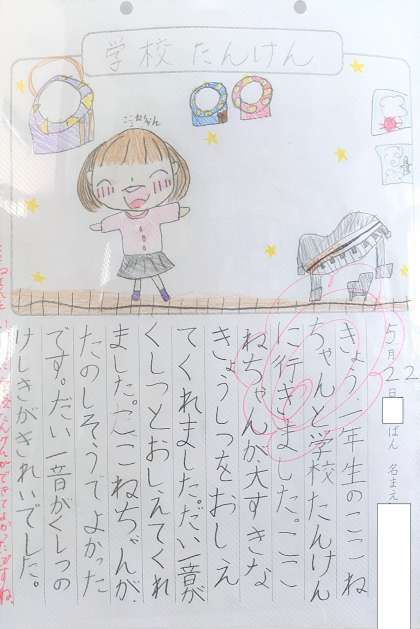 学校たんけん
ここねちゃん
5月22日
ばん 名まえ
きょう、一年生のここね
ちゃんと学校たんけん
に行きました。ここ
ねちゃんが大すきな
きょうしつをおしえ
てくれました。だい一音が
くしつとおしえてくれ
ました。ここねちゃんが、
たのしそうでよかった
です。だい一音がくしつの
けしきがきれいでした。